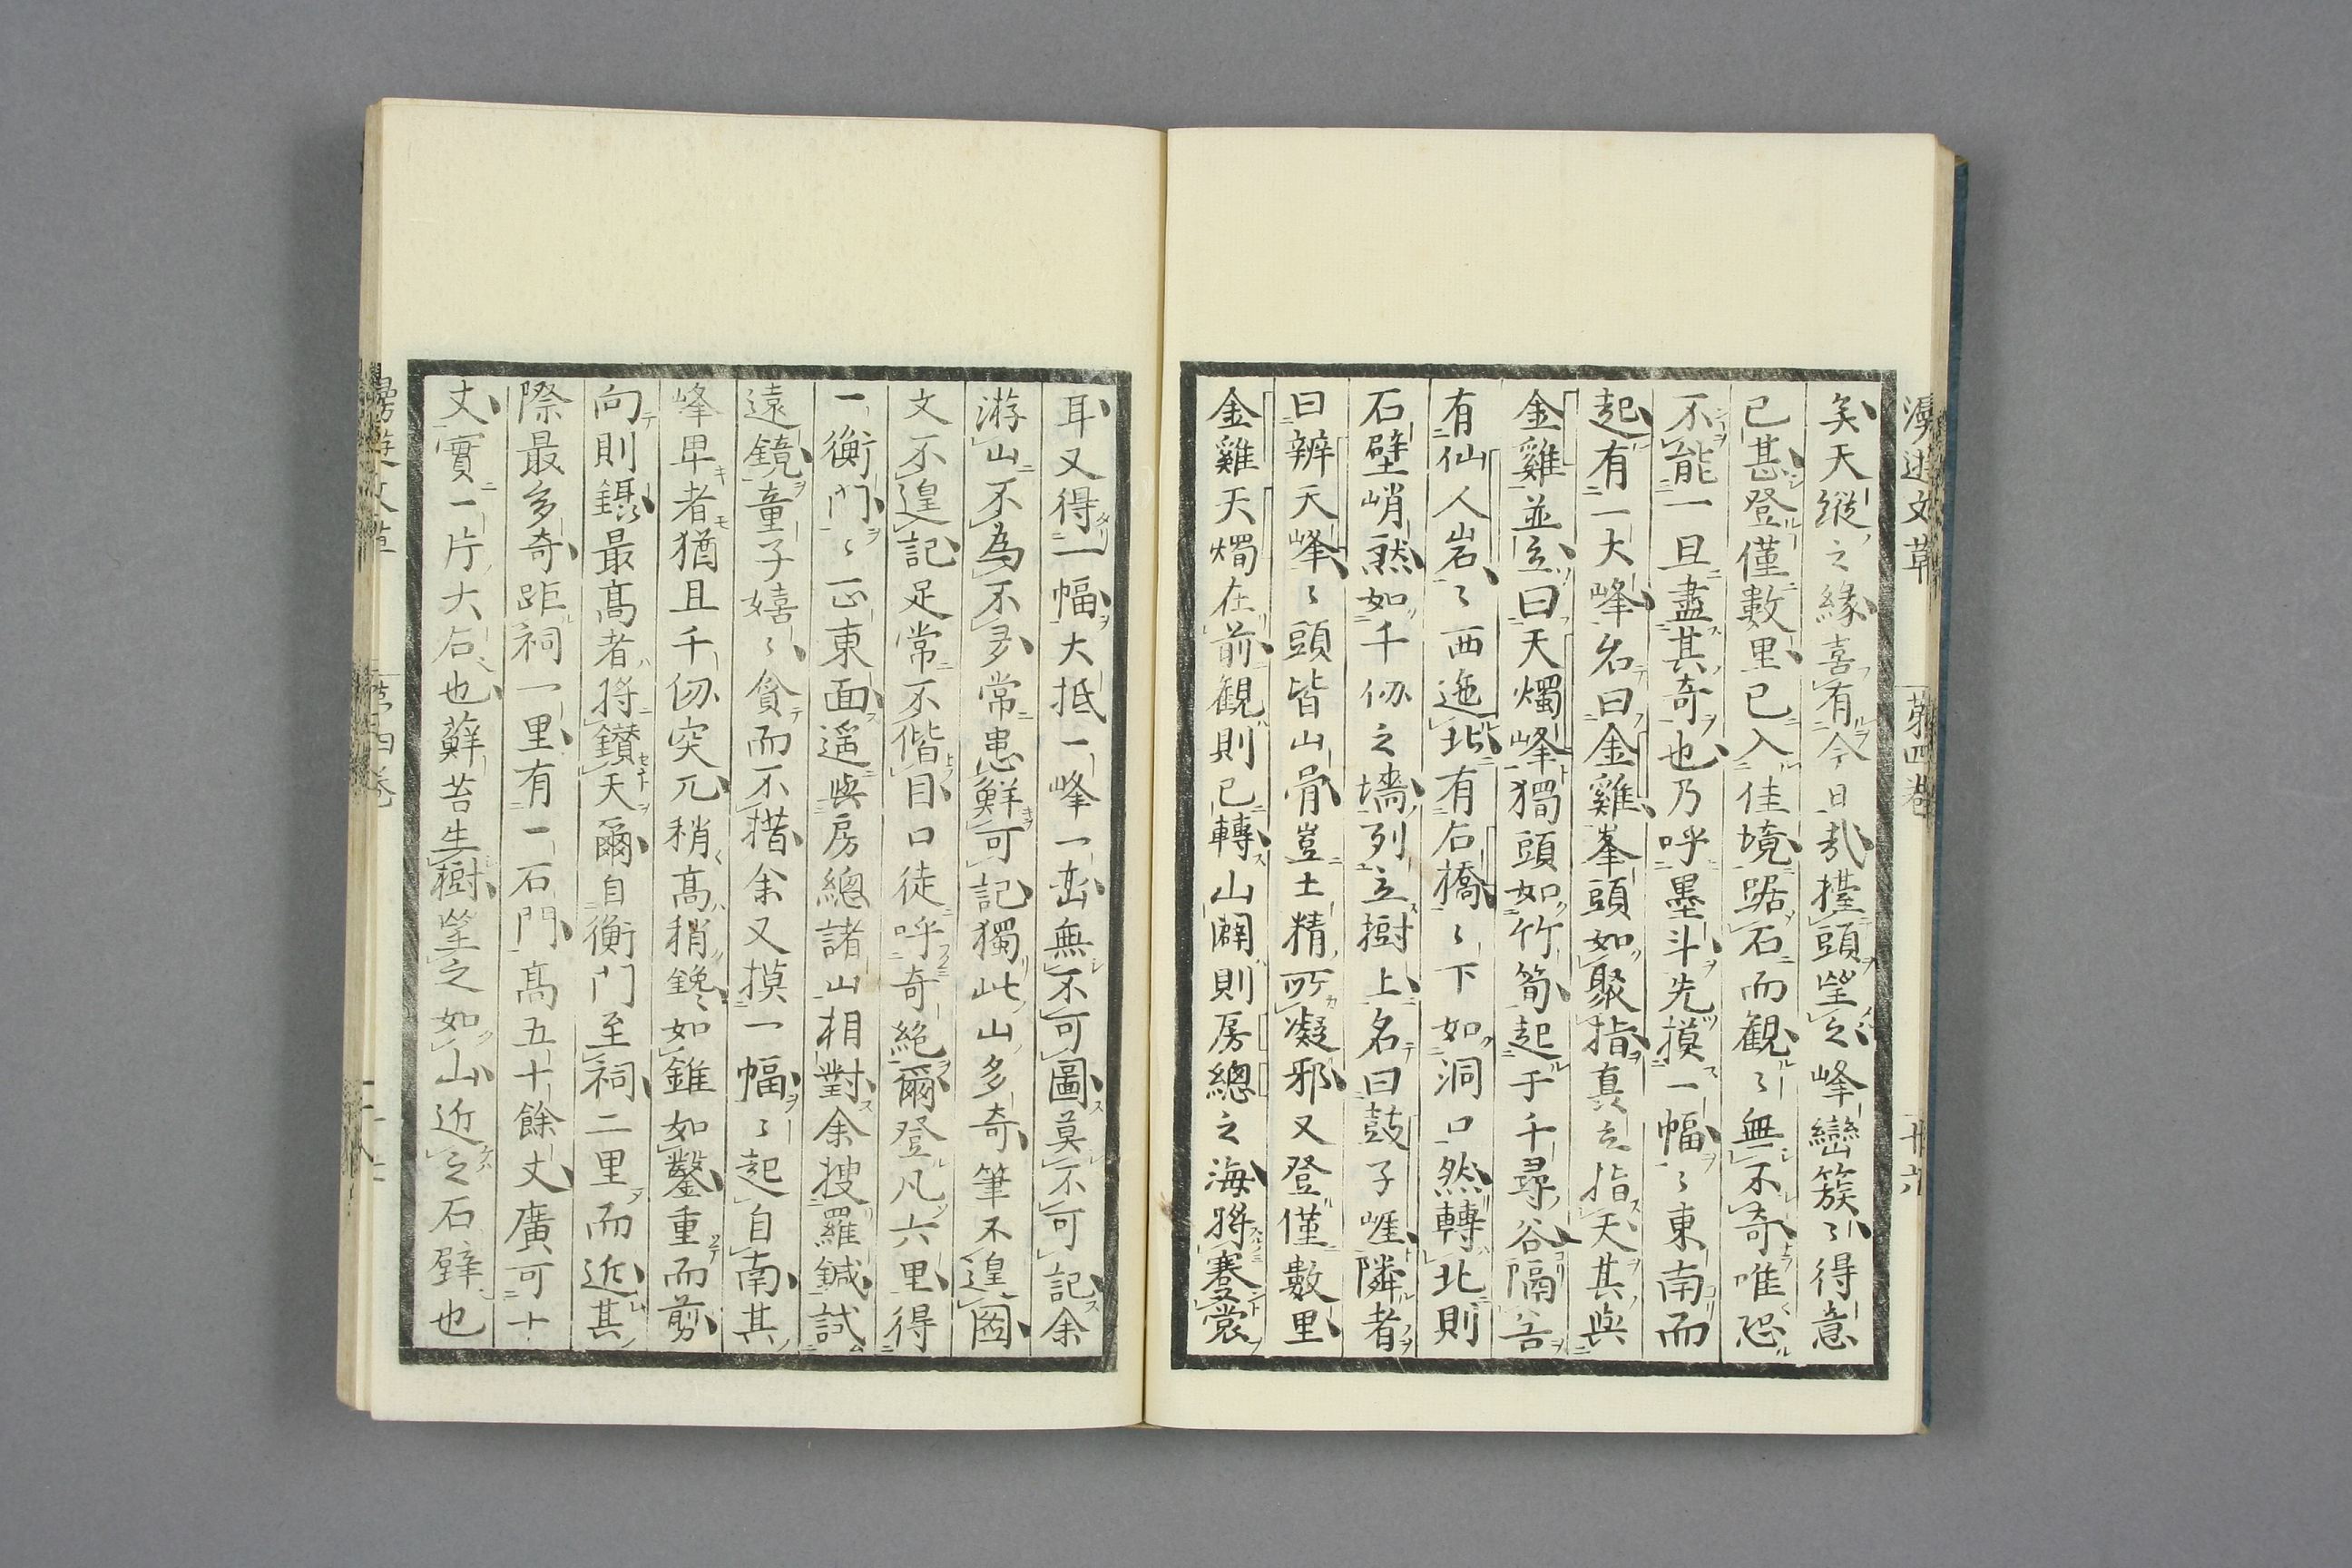 漫遊文草 第四卷 廿六
矣天縱之緣喜有今日哉擡頭望之峰巒簇〻得意
已甚登僅數里已入佳境踞石而觀〻無不奇唯恐
不能一旦盡其奇也乃呼墨斗先摸一幅〻東南而
起有一大峰名曰金雞峯頭如聚指真立指天其與
金雞並立曰天燭峰獨頭如竹筍起于千尋谷隔谷
有仙人岩〻西迤北有石橋〻下如洞口然轉北則
石壁峭然如千仞之墻列立樹上名曰鼓子崕隣者
曰辨天峰〻頭皆山骨豈土精所凝邪又登僅數里
金雞天燭在前觀則已轉山闢則房總之海將褰裳
耳又得一幅大抵一峰一巒無不可圖莫不可記余
游山不為不多常患鮮可記獨此山多奇筆不遑圖
文不遑記足常不偕目口徒呼奇絕爾登凡六里得
一衡門〻正東面遥與房總諸山相對余搜羅鍼試
遠鏡童子嬉〻貪而不措余又摸一幅〻起自南其
峰早者猶且千仞突兀稍高稍鑱〻如錐如鑿重而剪
向則鑷最高者將鑚天爾自衡門至祠二里而近其
際最多奇距祠一里有一石門高五十餘丈廣可十
丈實一片大石也蘚苔生樹望之如山近之石壁也